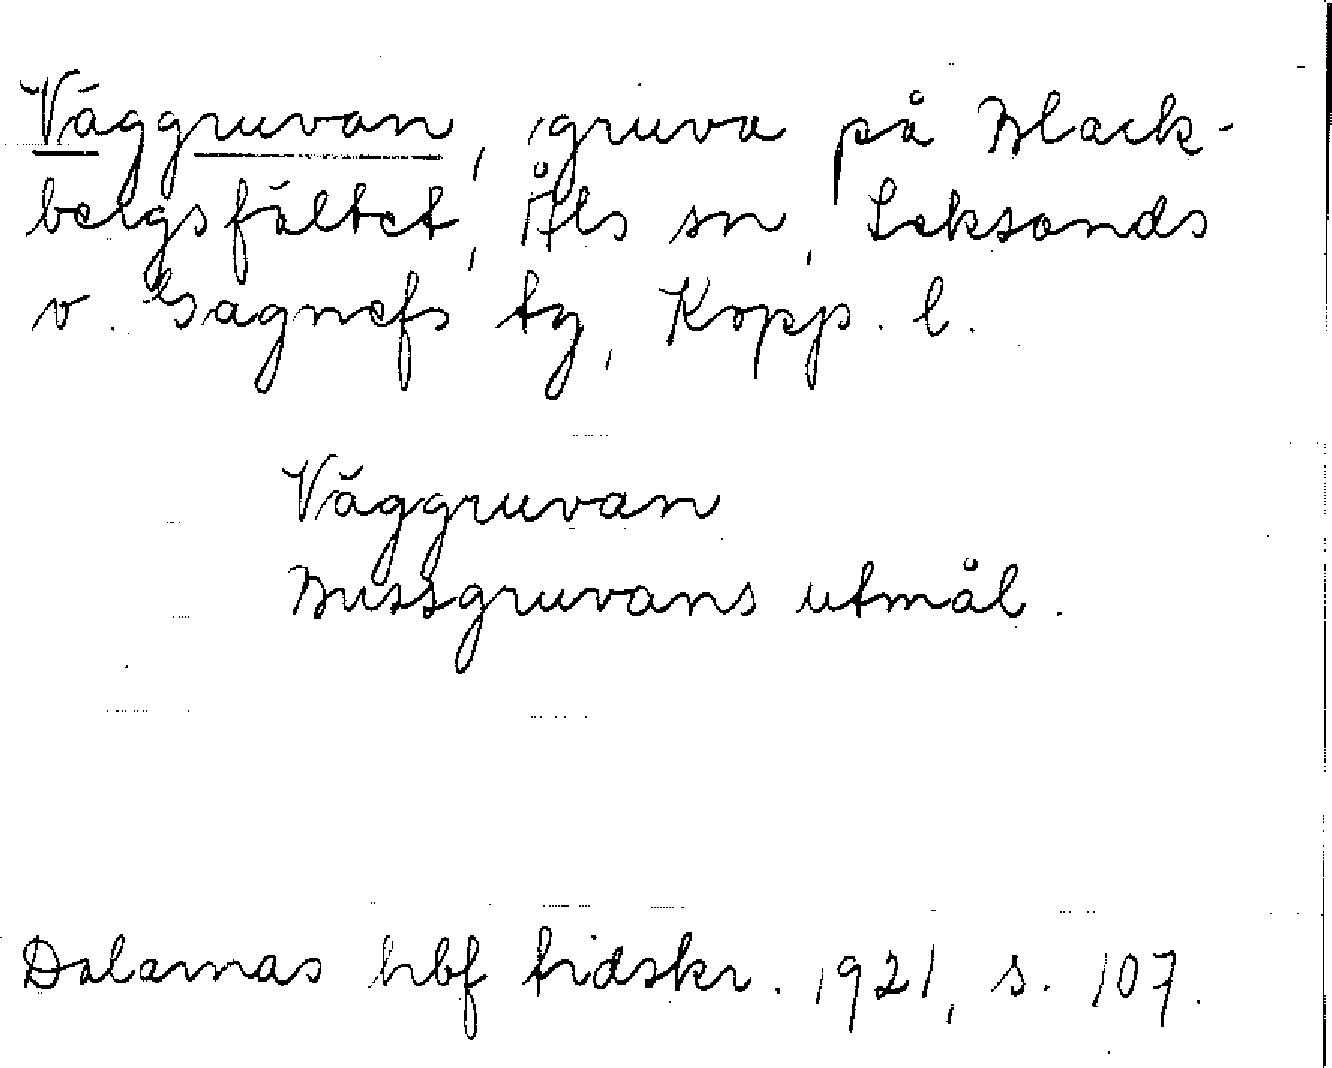 Väggruvan, gruva på Black-
bergsfältet, Åls sn, Leksands
o. Gagnefs tg, Kopp. l.
Väggruvan
Bussgruvans utmål.
Dalarnas hbf tidskr. 1921, s. 107.